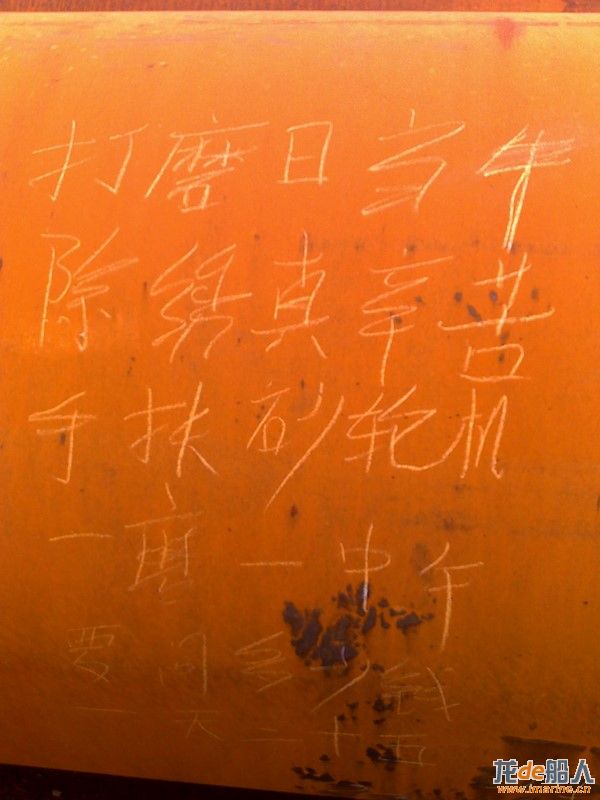 打磨日当午
除绣真辛苦
手扶砂轮机
一磨一中午
要问多少钱
一天二十五
龙de船人
www.imarine.cn